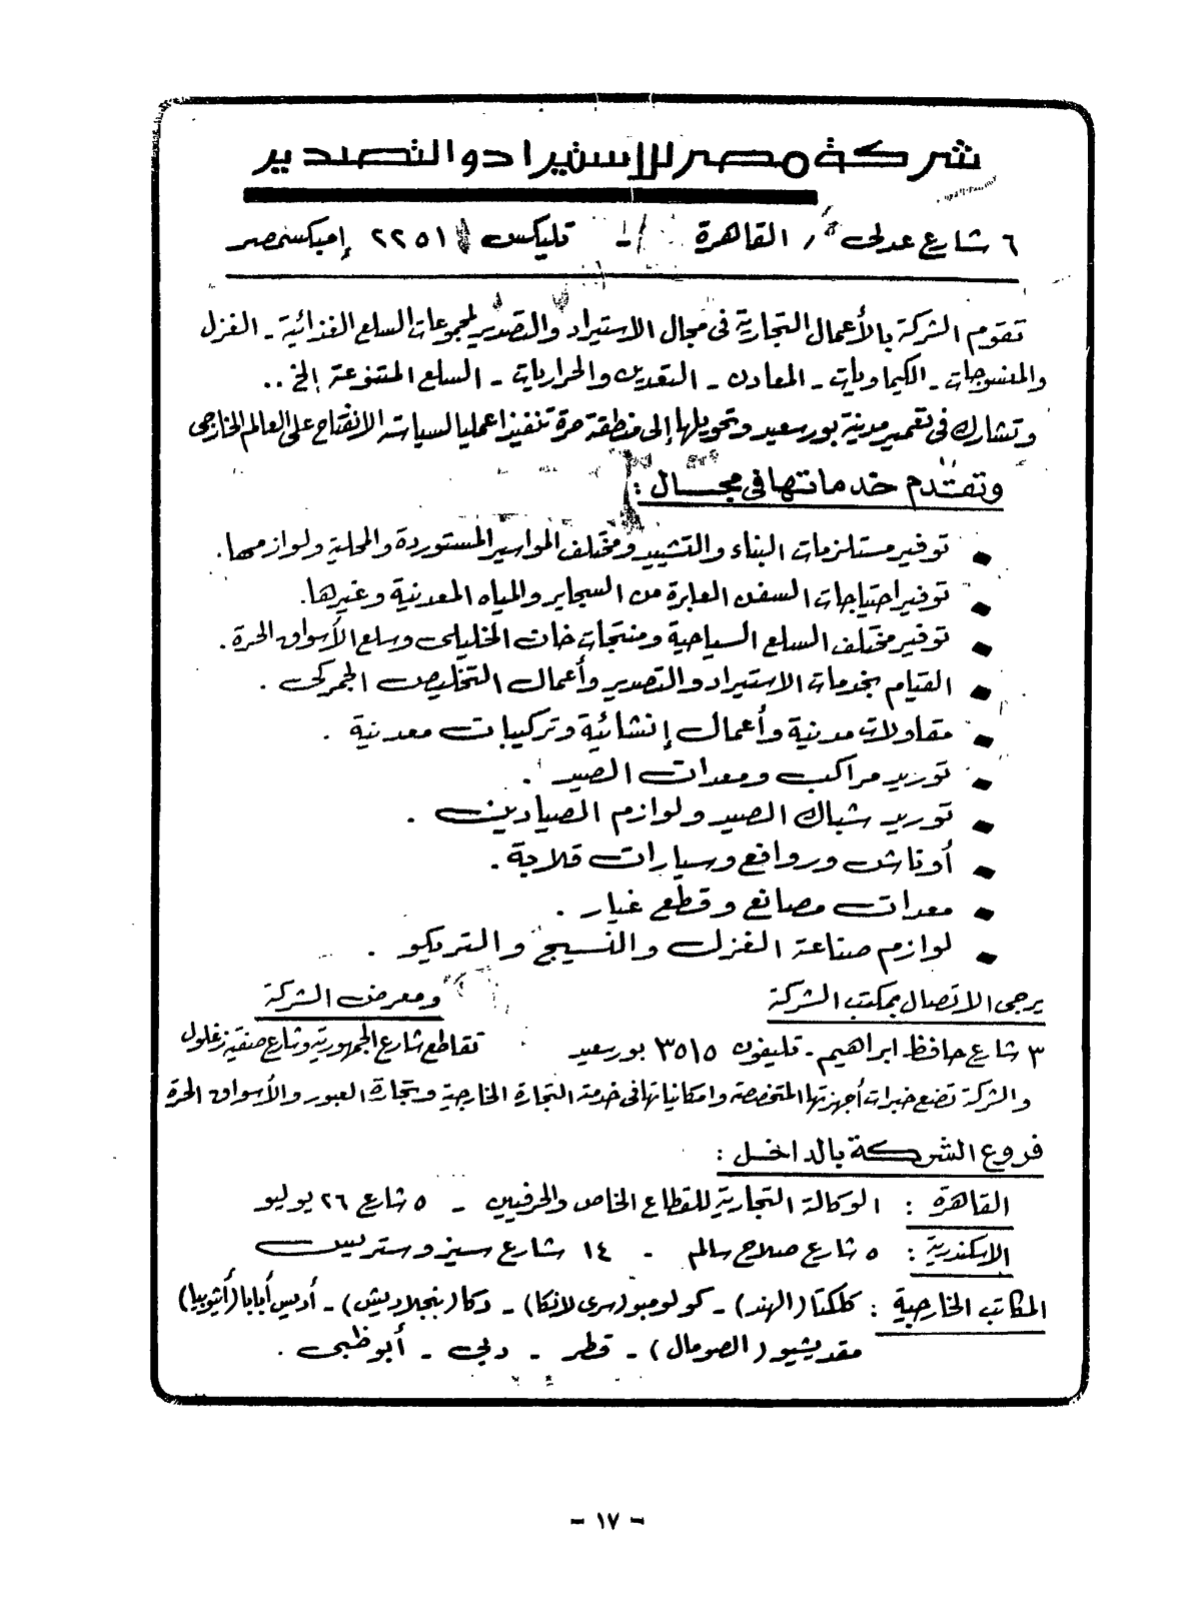 شركة مصر للإستيراد والتصدير
٦ شارع عدلى / القاهرة - تليكس ٢٢٥١ إمبكسمصر
تقوم الشركة بالأعمال التجارية فى مجال الاستيراد والتصدير لمجموعات السلع الغذائية - الغزل
والمنسوجات - الكيماويات - المعادن - التعدين والحراريات - السلع المتنوعة إلخ ..
وتشارك فى تعمير مدينة بورسعيد وتحويلها إلى منطقة حرة تنفيذا عمليا لسياسة الانفتاح على العالم الخارجى
وتقدم خدماتها فى مجال :
توفير مستلزمات البناء والتشييد ومختلف المواسير المستوردة والمحلية ولوازمها .
توفير احتياجات السفن العابرة من السجاير والمياه المعدنية وغيرها .
توفير مختلف السلع السياحية ومنتجات خان الخليلى وسلع الأسواق الحرة .
القيام بخدمات الاستيراد والتصدير وأعمال التخليص الجمركى .
مقاولات مدنية وأعمال إنشائية وتركيبات معدنية .
توريد مراكب ومعدات الصيد .
توريد شباك الصيد ولوازم الصيادين .
أوناش وروافع وسيارات قلابة .
معدات مصانع وقطع غيار .
لوازم صناعة الغزل والنسيج والتريكو .
يرجى الاتصال بمكتب الشركة ومعرض الشركة
٣ شارع حافظ ابراهيم - تليفون ٣٥١٥ بورسعيد تقاطع شارع الجمهورية وشارع صفية زغلول
والشركة تضع خبرات أجهزتها المتخصصة وامكانياتها فى خدمة التجارة الخارجية وتجارة العبور والأسواق الحرة
فروع الشركة بالداخل :
القاهرة : الوكالة التجارية للقطاع الخاص والحرفيين - ٥ شارع ٢٦ يوليو
الاسكندرية : ٥ شارع صلاح سالم - ١٤ شارع سيزوستريس
المكاتب الخارجية : كلكتا (الهند) - كولومبو (سرى لانكا) - دكا (بنجلاديش) - أديس أبابا (أثيوبيا)
مقديشيو (الصومال) - قطر - دبى - أبوظبى .
- ١٧ -